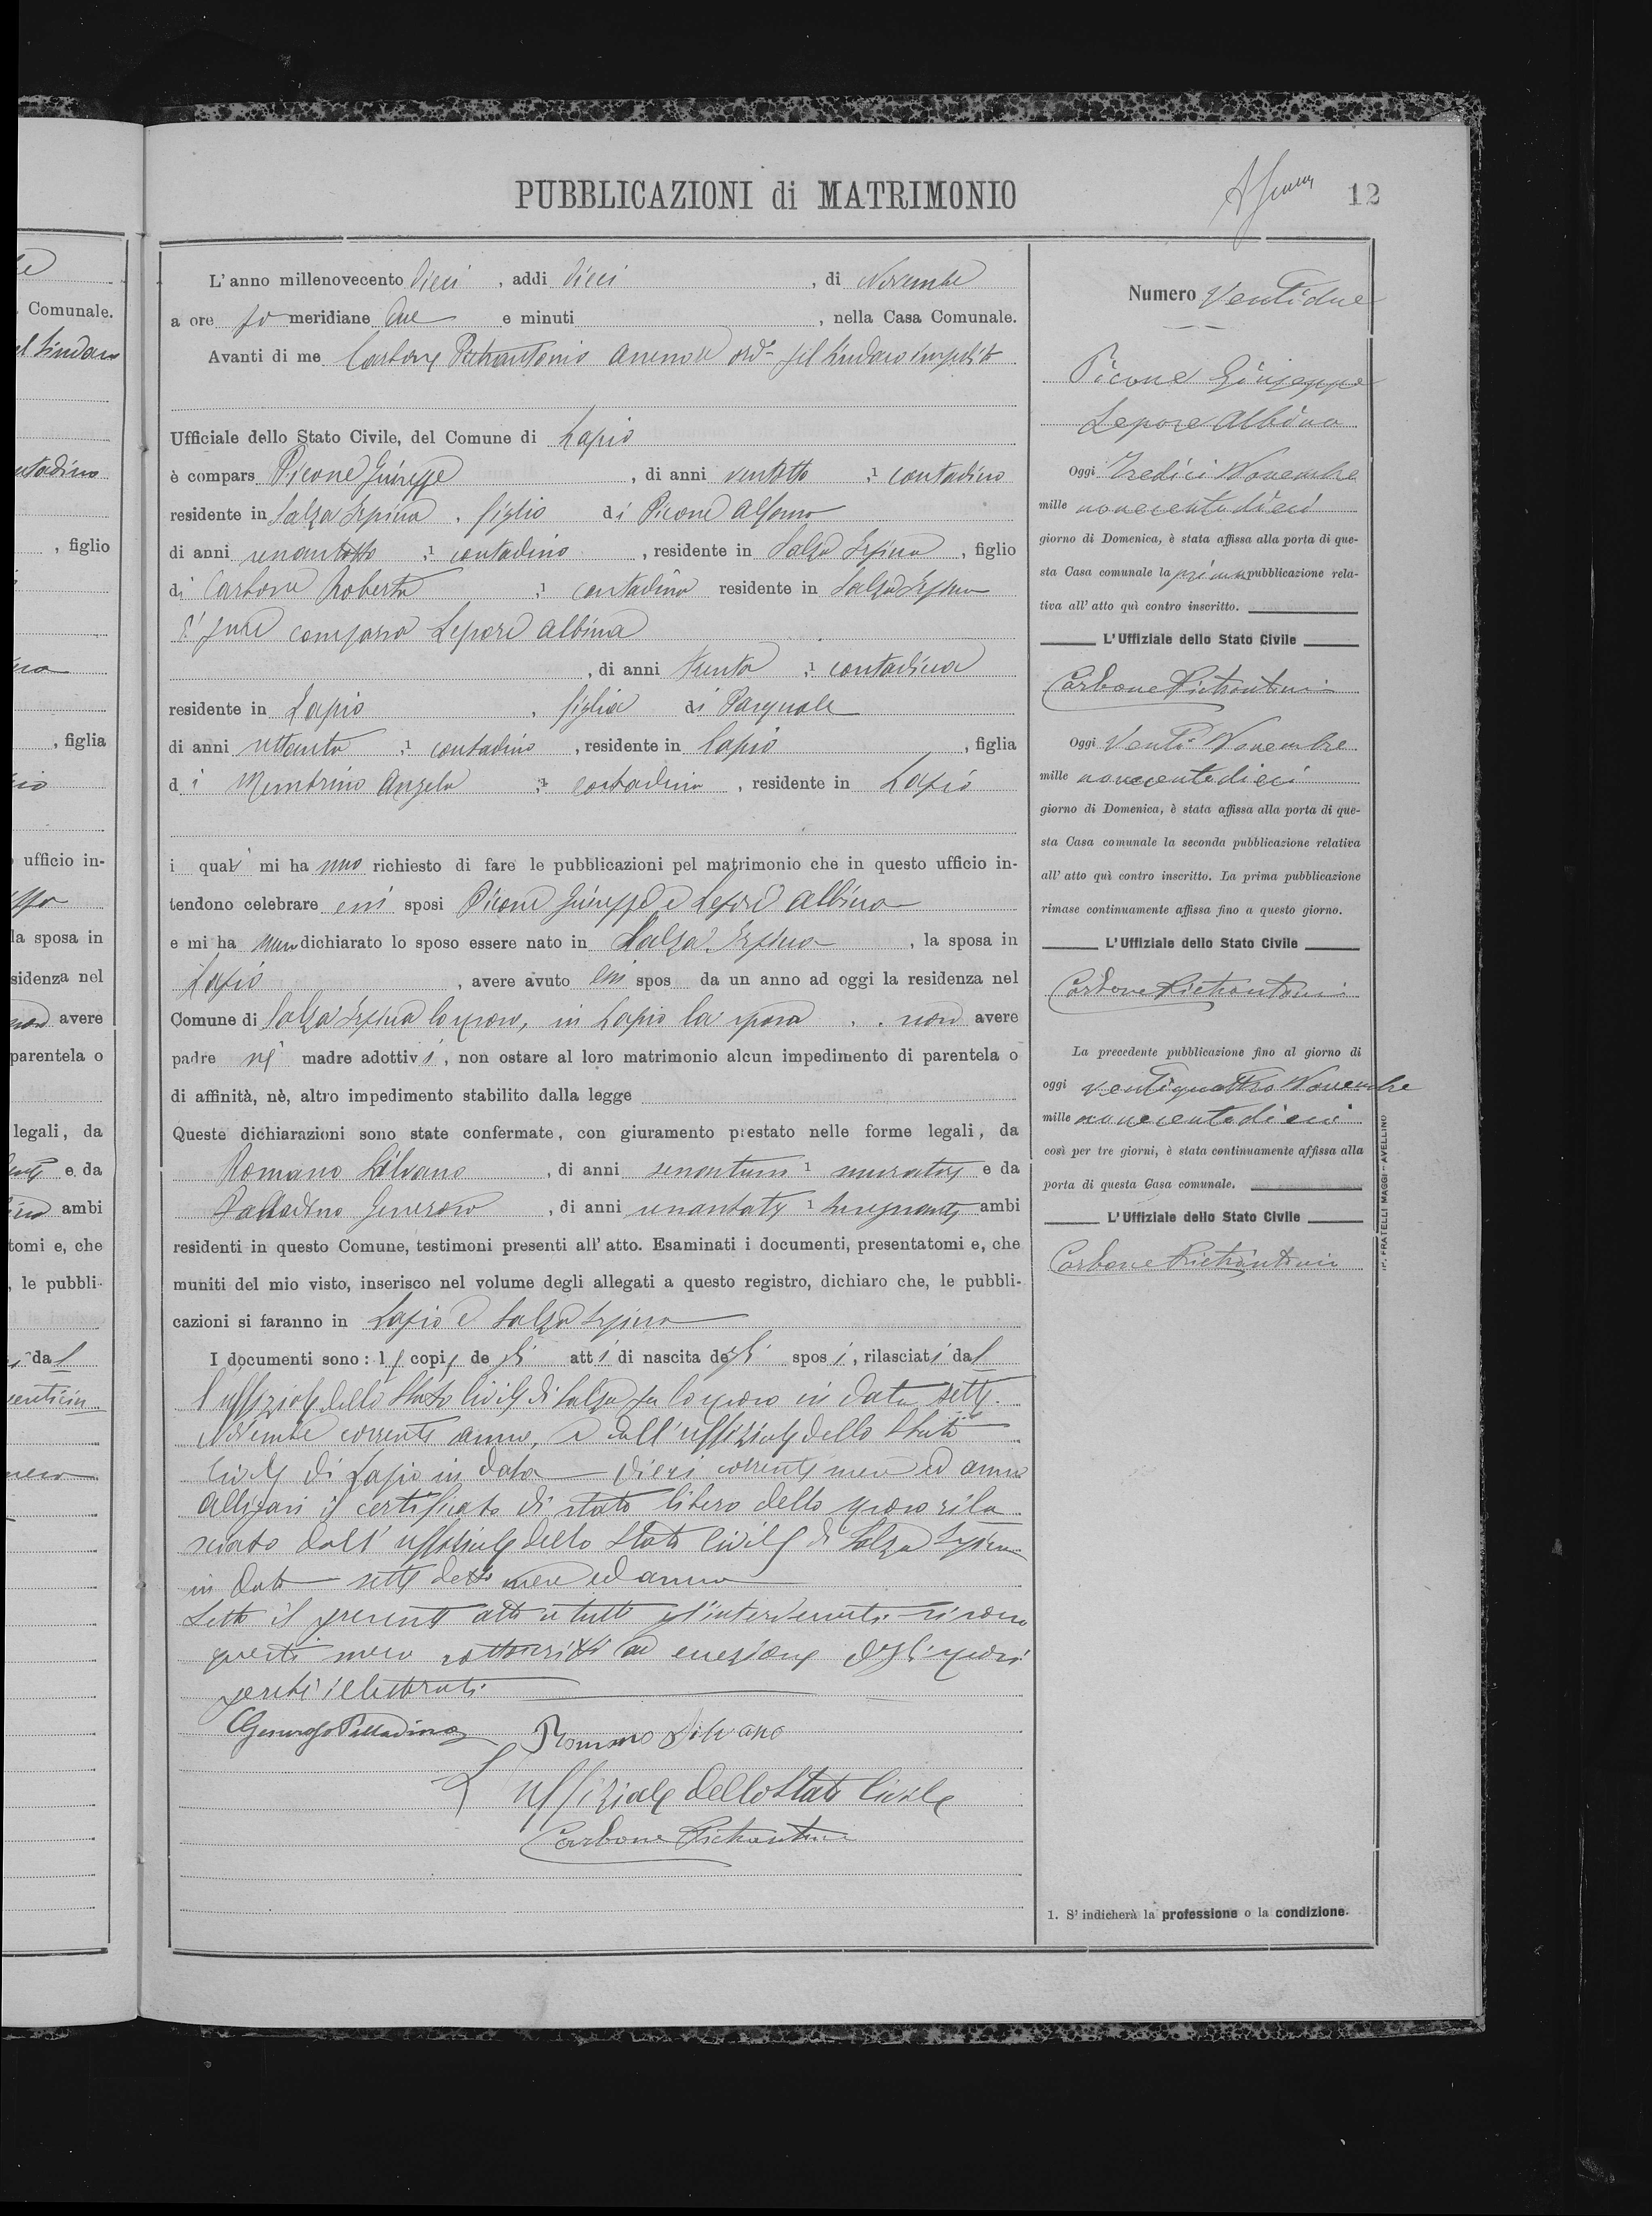 Comunale.
, figlio
, figlia
ufficio in-
la sposa in
sidenza nel
avere
parentela o
legali, da
e da
ambi
tomi e, che
, le pubbli-
da
PUBBLICAZIONI di MATRIMONIO
12
L'anno millenovecento dieci, addi dieci, di Novembre
a ore po meridiane due e minuti, nella Casa Comunale.
Avanti di me Carbone Pietrantonio assessore ord.e pel Sindaco impedito
Ufficiale dello Stato Civile, del Comune di Lapio
è compars Picone Giuseppe, di anni ventotto, 1 contadino
residente in Salza Irpina, figlio di Picone Alfonso
di anni 1 contadino, residente in Salza Irpina, figlio
di Carbone Roberta, 1 contadina residente in Salza Irpina
E' pure comparsa Lepore Albina
, di anni trenta, 1 contadina
residente in Lapio, figlia di Pasquale
di anni ottanta, 1 contadino, residente in Lapio, figlia
di Membrino Angela, 1 contadina, residente in Lapio
i quali mi hanno richiesto di fare le pubblicazioni pel matrimonio che in questo ufficio in-
tendono celebrare essi sposi Picone Giuseppe e Lepore Albina
e mi hanno dichiarato lo sposo essere nato in Salza Irpina, la sposa in
Lapio, avere avuto essi spos da un anno ad oggi la residenza nel
Comune di Salza Irpina lo sposo, in Lapio la sposa.. non avere
padre nè madre adottivi, non ostare al loro matrimonio alcun impedimento di parentela o
di affinità, nè, altro impedimento stabilito dalla legge
Queste dichiarazioni sono state confermate, con giuramento prestato nelle forme legali, da
Romano Silvano, di anni sessantuno 1 muratore e da
Palladino Generoso, di anni 1 ambi
residenti in questo Comune, testimoni presenti all'atto. Esaminati i documenti, presentatomi e, che
muniti del mio visto, inserisco nel volume degli allegati a questo registro, dichiaro che, le pubbli-
cazioni si faranno in Lapio e Salza Irpina
I documenti sono: le copie degli atti di nascita degli sposi, rilasciati dal
l'uffiziale dello Stato Civile di Salza per lo sposo in data sette
Novembre corrente anno, e dall'uffiziale dello Stato
Civile di Lapio in data dieci corrente mese ed anno
Allegasi il certificato di stato libero dello sposo rila
sciato dall'uffiziale dello Stato Civile di Salza Irpina
in data sette detto mese ed anno
Letto il presente atto a tutti gl'intervenuti si sono
questi meco sottoscritti ad eccezione degli sposi
perchè illetterati
Generoso Palladino Romano Silvano
L'uffiziale dello Stato Civile
Carbone Pietrantonio
Numero Ventidue
Picone Giuseppe
Lepore Albina
Oggi Tredici Novembre
mille novecentodieci
giorno di Domenica, è stata affissa alla porta di que-
sta Casa comunale la prima pubblicazione rela-
tiva all'atto quì contro inscritto.
L'Uffiziale dello Stato Civile
Carbone Pietrantonio
Oggi Venti Novembre
mille novecentodieci
giorno di Domenica, è stata affissa alla porta di que-
sta Casa comunale la seconda pubblicazione relativa
all'atto quì contro inscritto. La prima pubblicazione
rimase continuamente affissa fino a questo giorno.
L'Uffiziale dello Stato Civile
Carbone Pietrantonio
La precedente pubblicazione fino al giorno di
oggi ventiquattro Novembre
mille novecentodieci
così per tre giorni, è stata continuamente affissa alla
porta di questa Casa comunale.
L'Uffiziale dello Stato Civile
Carbone Pietrantonio
1. S'indicherà la professione o la condizione.
FRATELLI MAGGI - AVELLINO